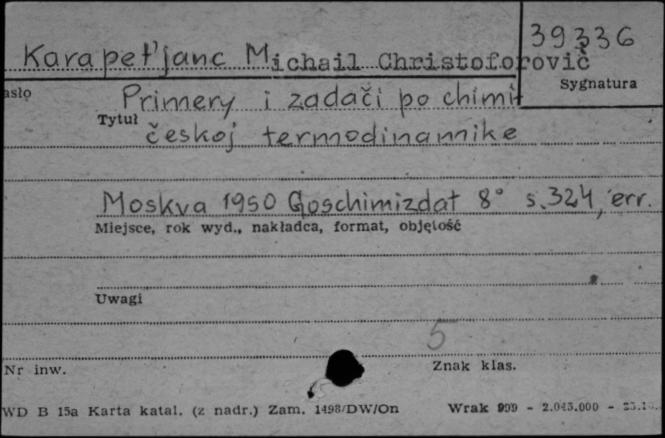 39336
Karapet'janc Michail Christoforovič
asło
Sygnatura
Primery i zadači po chimi-
Tytuł
českoj termodinamike
Moskva 1950 Goschimizdat 8° s. 324, err.
Miejsce, rok wyd., nakładca, format, objętość
Uwagi
5
Nr inw.
Znak klas.
WD B 15a Karta katal. (z nadr.) Zam. 1498/DW/On Wrak 909 - 2.045.000 -